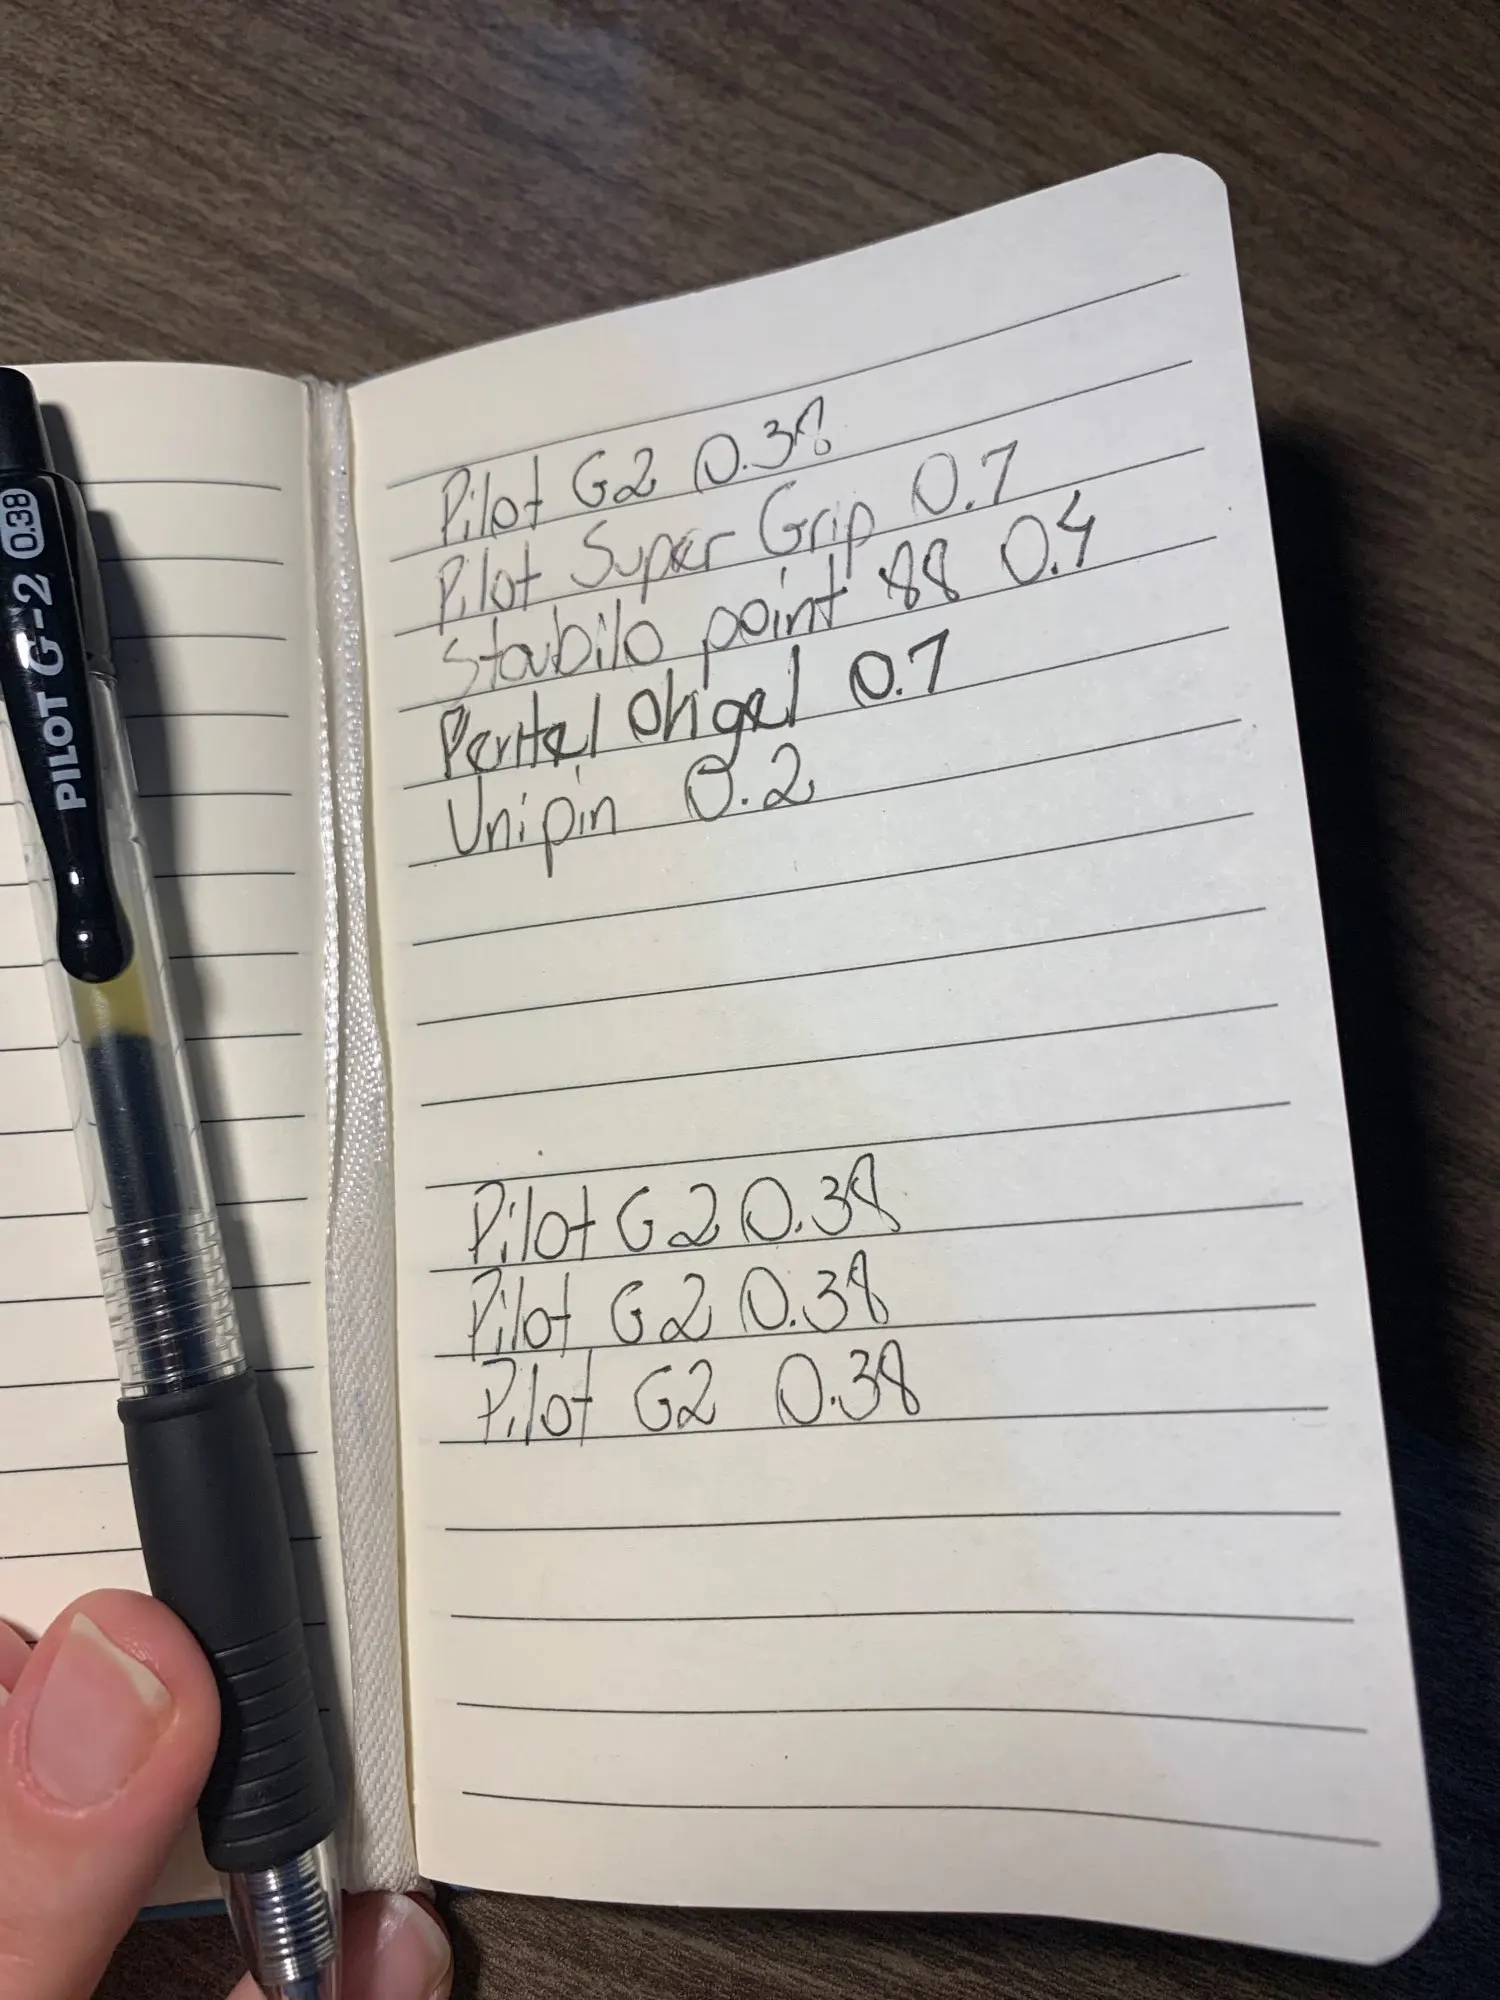 PILOT G-2 0.38
Pilot G2 0.38
Pilot Super Grip 0.7
Stabilo point 88 0.4
Pentel Ohgel 0.7
Unipin 0.2
Pilot G2 0.38
Pilot G2 0.38
Pilot G2 0.38